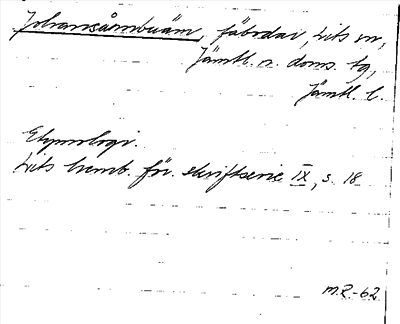 Johansånnbuäm, fäbodar, Lits sn,
Jämtl. n. doms. tg,
Jämtl. l.
Etymologi.
Lits hemb. för. skriftserie IX, s. 18
M.R.-62